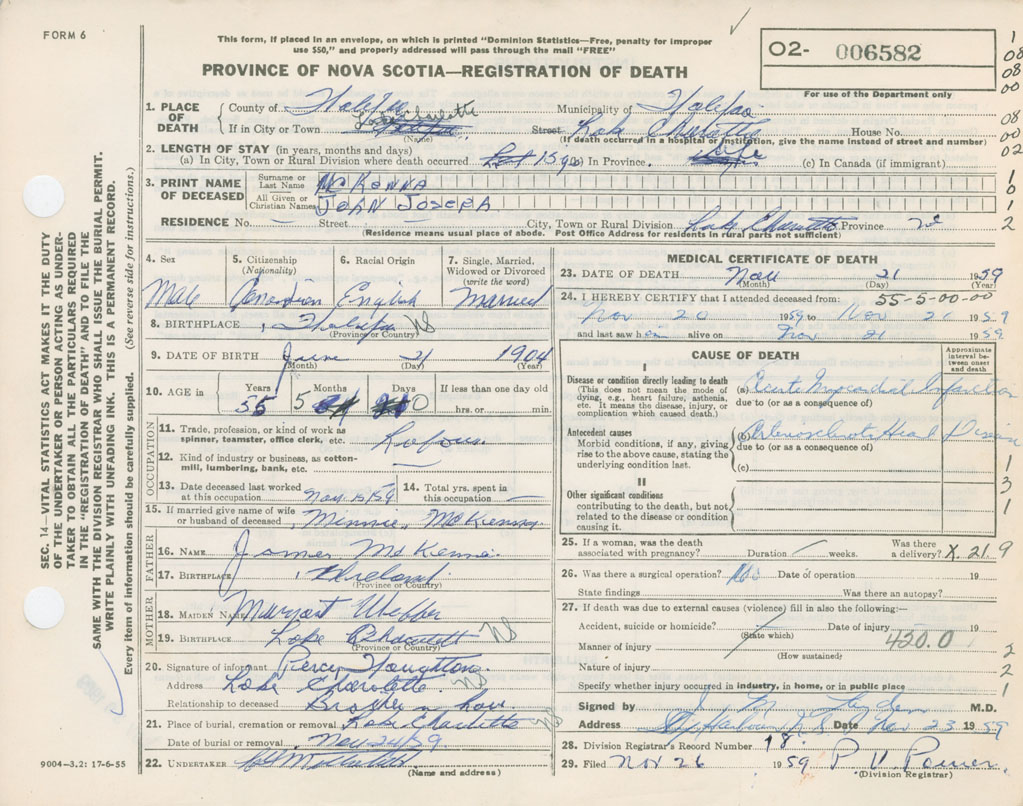 FORM 6
This form, if placed in an envelope, on which is printed "Dominion Statistics—Free, penalty for improper
use $50," and properly addressed will pass through the mail "FREE"
PROVINCE OF NOVA SCOTIA—REGISTRATION OF DEATH
02- 006582
For use of the Department only
1
08
08
00
08
00
02
1
0
1
2
1. PLACE OF DEATH
County of Halifax Municipality of Halifax
If in City or Town Lake Charlotte Street Lake Charlotte House No.
(Name) (If death occurred in a hospital or institution, give the name instead of street and number)
2. LENGTH OF STAY (in years, months and days)
(a) In City, Town or Rural Division where death occurred 15 yrs (b) In Province Life (c) In Canada (if immigrant)
3. PRINT NAME OF DECEASED
Surname or Last Name McKENNA
All Given or Christian Names JOHN JOSEPH
RESIDENCE No. Street City, Town or Rural Division Lake Charlotte Province NS
(Residence means usual place of abode. Post Office Address for residents in rural parts not sufficient)
4. Sex Male
5. Citizenship (Nationality) Canadian
6. Racial Origin English
7. Single, Married, Widowed or Divorced (write the word) Married
8. BIRTHPLACE Halifax NS
(Province or Country)
9. DATE OF BIRTH June 21 1904
(Month) (Day) (Year)
10. AGE in Years 55 Months 5 Days 0 If less than one day old hrs. or min.
OCCUPATION
11. Trade, profession, or kind of work as spinner, teamster, office clerk, etc.
12. Kind of industry or business, as cotton-mill, lumbering, bank, etc. —
13. Date deceased last worked at this occupation Nov. 15/59
14. Total yrs. spent in this occupation —
15. If married give name of wife or husband of deceased Minnie McKenna
FATHER
16. NAME James McKenna
17. BIRTHPLACE Ireland
(Province or Country)
MOTHER
18. MAIDEN NAME Margaret Webber
19. BIRTHPLACE Lake Charlotte NS
(Province or Country)
20. Signature of informant Percy Houghton
Address Lake Charlotte NS
Relationship to deceased Brother in law
21. Place of burial, cremation or removal Lake Charlotte NS
Date of burial or removal Nov 24/59
22. UNDERTAKER
(Name and address)
MEDICAL CERTIFICATE OF DEATH
23. DATE OF DEATH Nov 21 1959
(Month) (Day) (Year)
55-5-00-00
24. I HEREBY CERTIFY that I attended deceased from:
Nov 20 1959 to Nov 21 1959
and last saw him alive on Nov 21 1959
CAUSE OF DEATH
Approximate interval between onset and death
I
Disease or condition directly leading to death
(This does not mean the mode of dying, e.g., heart failure, asthenia, etc. It means the disease, injury, or complication which caused death.)
(a) Acute Myocardial Infarction
due to (or as a consequence of)
Antecedent causes
Morbid conditions, if any, giving rise to the above cause, stating the underlying condition last.
(b) Arteriosclerotic Heart Disease
due to (or as a consequence of)
(c)
II
Other significant conditions
contributing to the death, but not related to the disease or condition causing it.
1
3
1
25. If a woman, was the death associated with pregnancy? Duration weeks. Was there a delivery? X.21.9
26. Was there a surgical operation? No Date of operation 19
State findings Was there an autopsy?
27. If death was due to external causes (violence) fill in also the following:—
Accident, suicide or homicide? Date of injury 19
(State which)
Manner of injury 420.0 2
(How sustained)
Nature of injury 2
Specify whether injury occurred in industry, in home, or in public place 1
Signed by M.D.
Address Date Nov 23 1959
28. Division Registrar's Record Number 18.
29. Filed Nov 26 1959
(Division Registrar)
9004—3.2: 17-6-55
SEC. 14—VITAL STATISTICS ACT MAKES IT THE DUTY
OF THE UNDERTAKER OR PERSON ACTING AS UNDER-
TAKER TO OBTAIN ALL THE PARTICULARS REQUIRED
IN THE "REGISTRATION OF DEATH" AND TO FILE THE
SAME WITH THE DIVISION REGISTRAR WHO SHALL ISSUE THE BURIAL PERMIT.
WRITE PLAINLY WITH UNFADING INK. THIS IS A PERMANENT RECORD.
Every item of information should be carefully supplied. (See reverse side for instructions.)